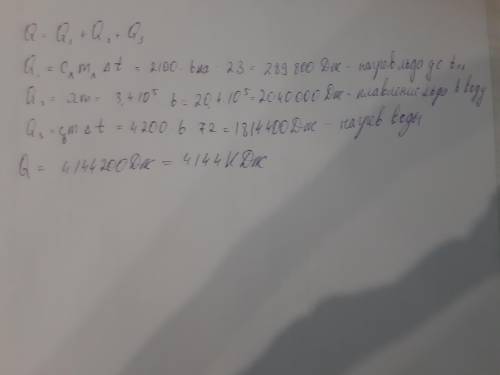 Q = Q₁ + Q₂ + Q₃
Q₁ = Cл mл Δt = 2100 · 6кг · 23 = 289800 Дж - нагрев льда до tпл
Q₂ = λm = 3,4·10⁵ 6 = 20,4·10⁵ = 2040000 Дж - плавление льда в воду
Q₃ = cm Δt = 4200 6 72 = 1814400 Дж - нагрев воды
Q = 4144200 Дж = 4144 КДж